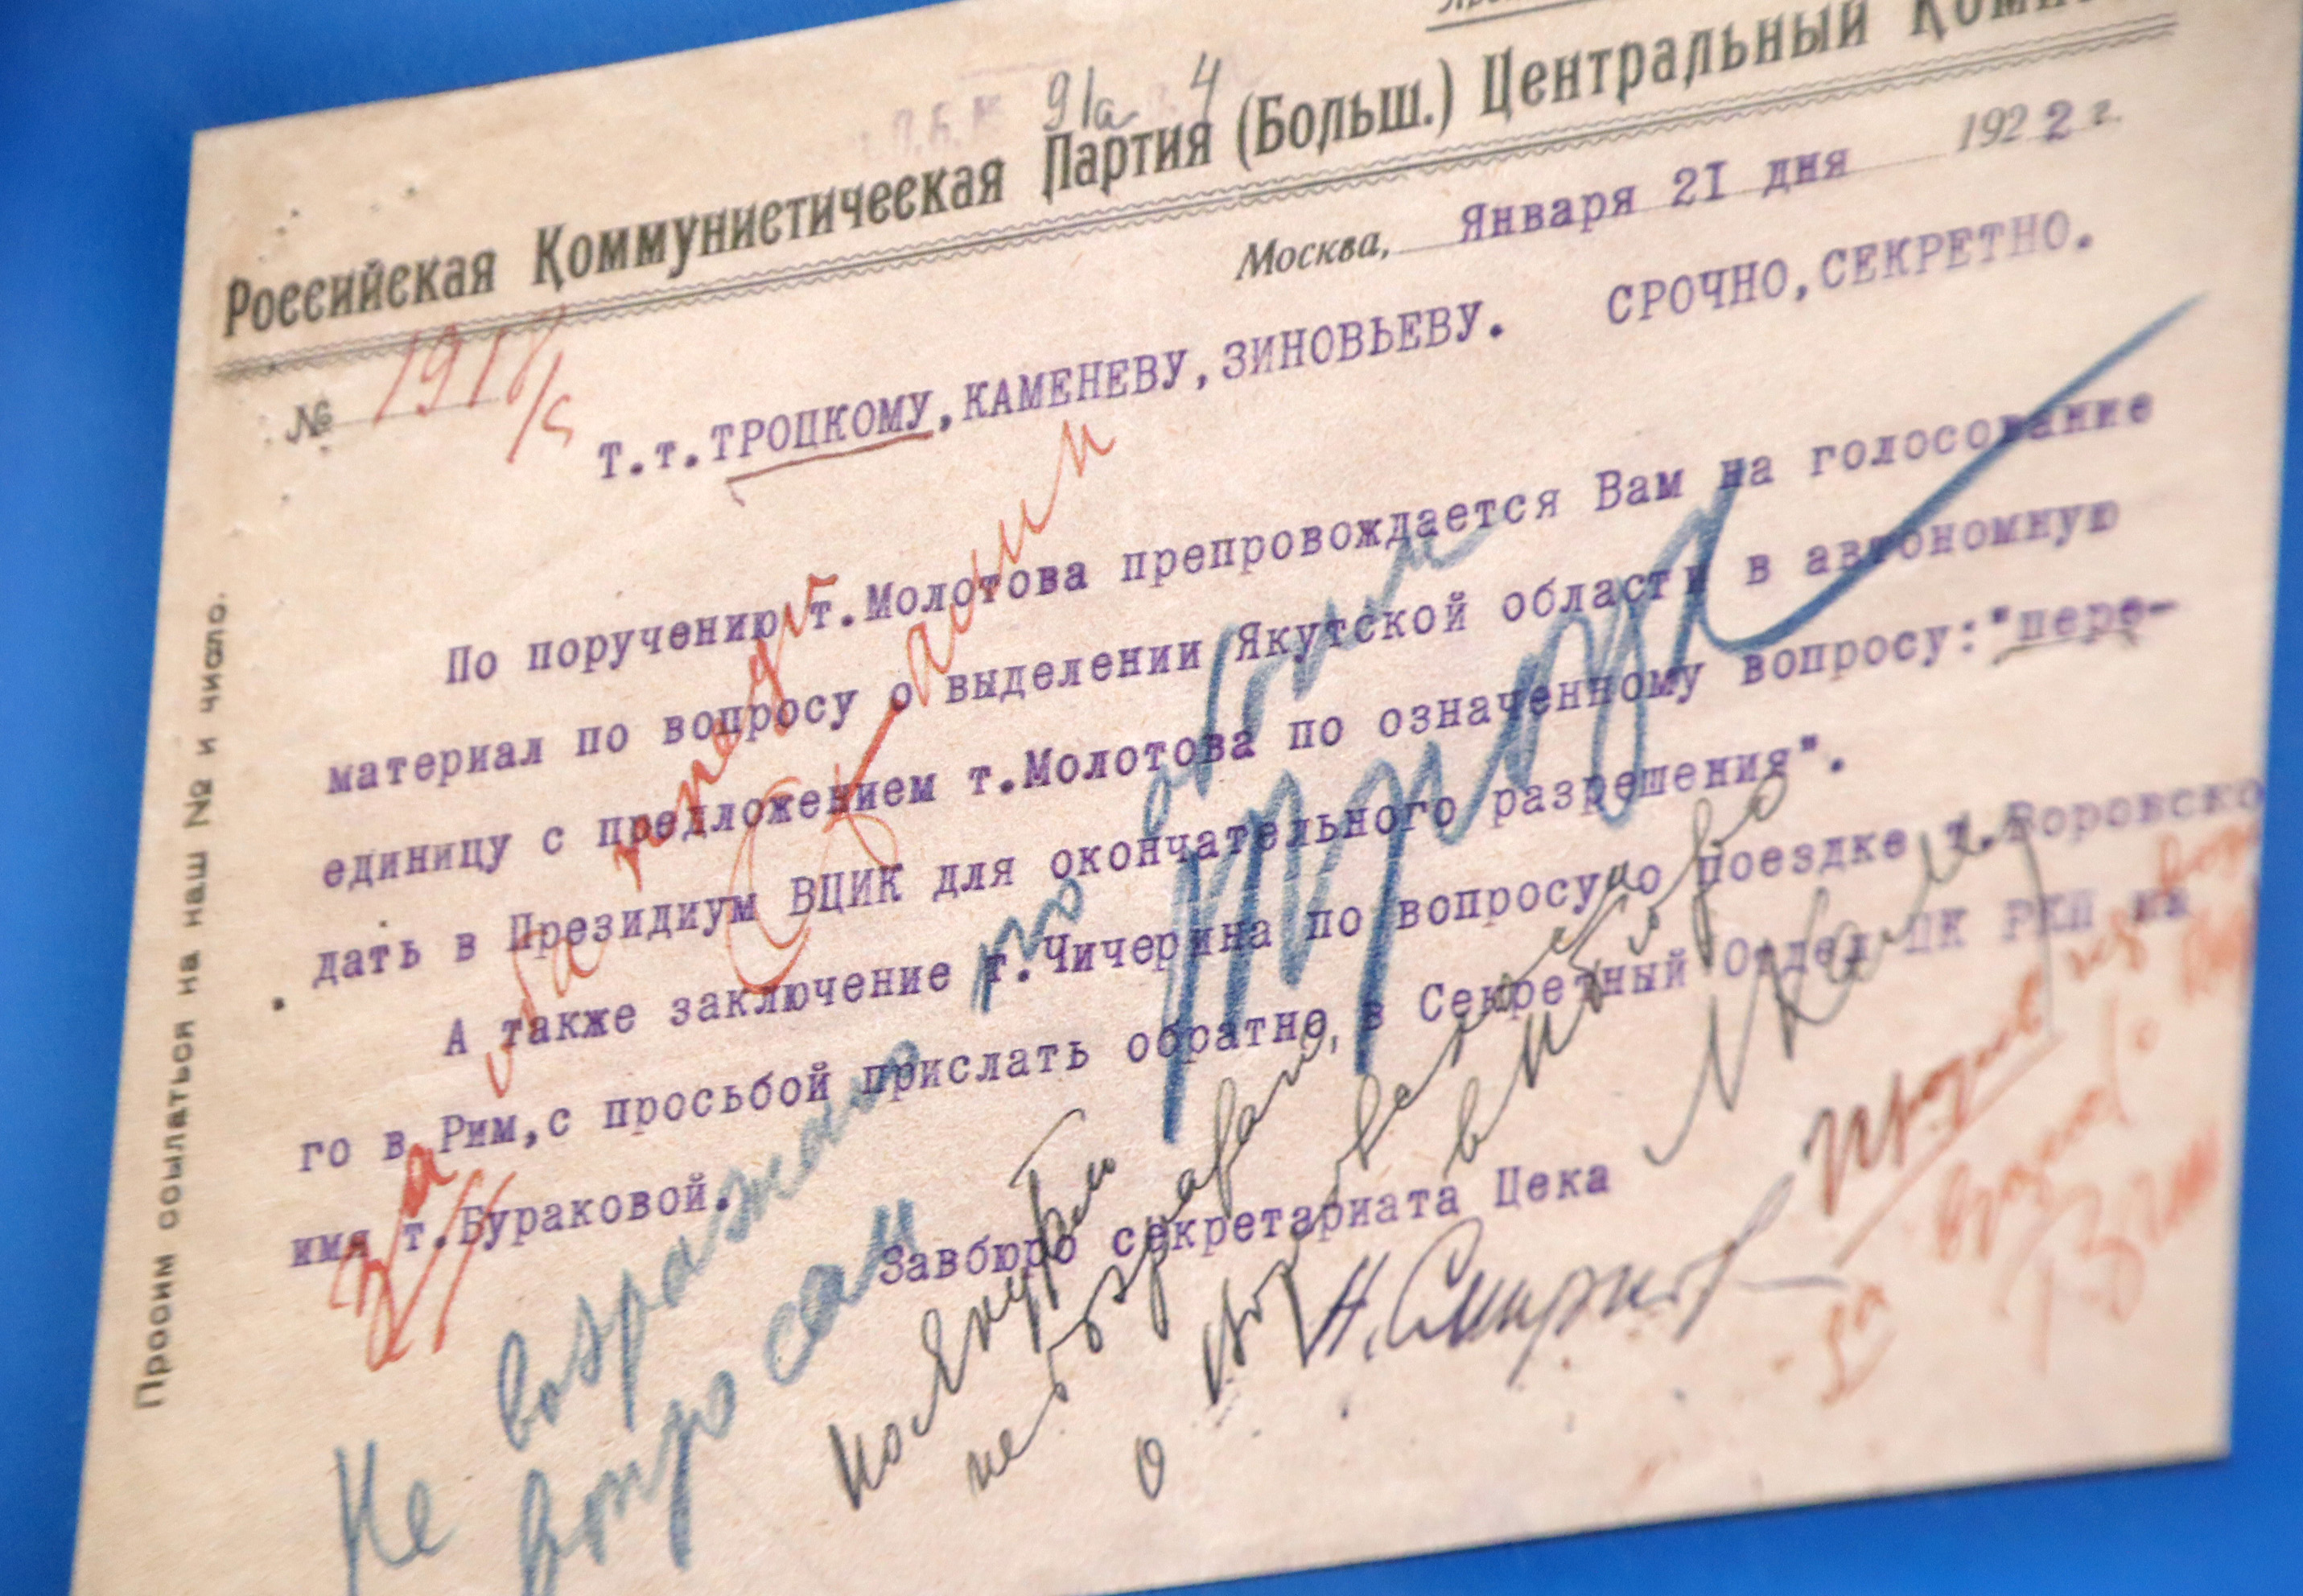 91а 4
Российская Коммунистическая Партия (Больш.) Центральный
Москва, Января 21 дня 1922 г.
№ 1918/s
Т.т.ТРОЦКОМУ,КАМЕНЕВУ,ЗИНОВЬЕВУ. СРОЧНО,СЕКРЕТНО.
По поручению т.Молотова препровождается Вам на голосование
материал по вопросу о выделении Якутской области в автономную
единицу с предложением т.Молотова по означенному вопросу:"пере-
дать в Президиум ВЦИК для окончательного разрешения".
А также заключение т.Чичерина по вопросу о поездке т.Воровско
го в Рим,с просьбой прислать обратно в Секретный Отдел ЦК РКП на
имя т.Бураковой.
Завбюро секретариата Цека
Н.Смирнов
Просим ссылаться на наш № и число.
За
И.Сталин
Не возражаю по обоим
вопросам
Троцкий
не возражаю,
о
Против
За